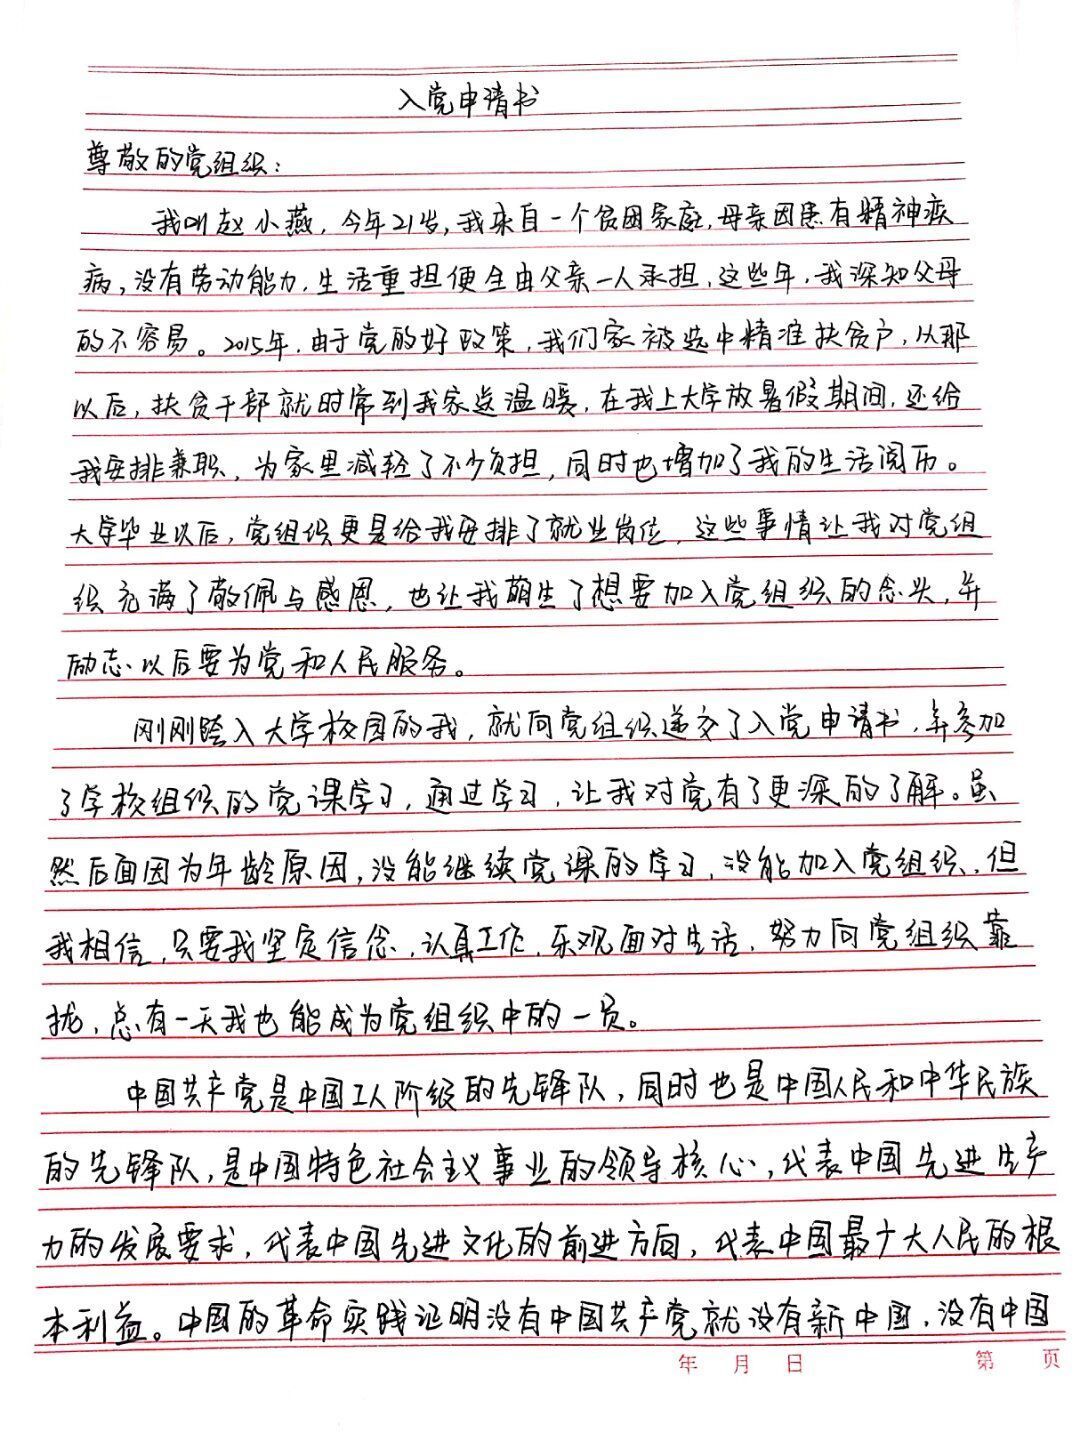 入党申请书
尊敬的党组织：
我叫赵小燕，今年21岁，我来自一个贫困家庭，母亲因患有精神疾
病，没有劳动能力，生活重担便全由父亲一人承担，这些年，我深知父母
的不容易。2015年，由于党的好政策，我们家被选中精准扶贫户，从那
以后，扶贫干部就时常到我家送温暖，在我上大学放暑假期间，还给
我安排兼职，为家里减轻了不少负担，同时也增加了我的生活阅历。
大学毕业以后，党组织更是给我安排了就业岗位，这些事情让我对党组
织充满了敬佩与感恩，也让我萌生了想要加入党组织的念头，并
励志以后要为党和人民服务。
刚刚跨入大学校园的我，就向党组织递交了入党申请书，并参加
了学校组织的党课学习，通过学习，让我对党有了更深的了解。虽
然后面因为年龄原因，没能继续党课的学习，没能加入党组织，但
我相信，只要我坚定信念，认真工作，乐观面对生活，努力向党组织靠
拢，总有一天我也能成为党组织中的一员。
中国共产党是中国工人阶级的先锋队，同时也是中国人民和中华民族
的先锋队，是中国特色社会主义事业的领导核心，代表中国先进生产
力的发展要求，代表中国先进文化的前进方向，代表中国最广大人民的根
本利益。中国的革命实践证明没有中国共产党就没有新中国，没有中国
年 月 日 第 页